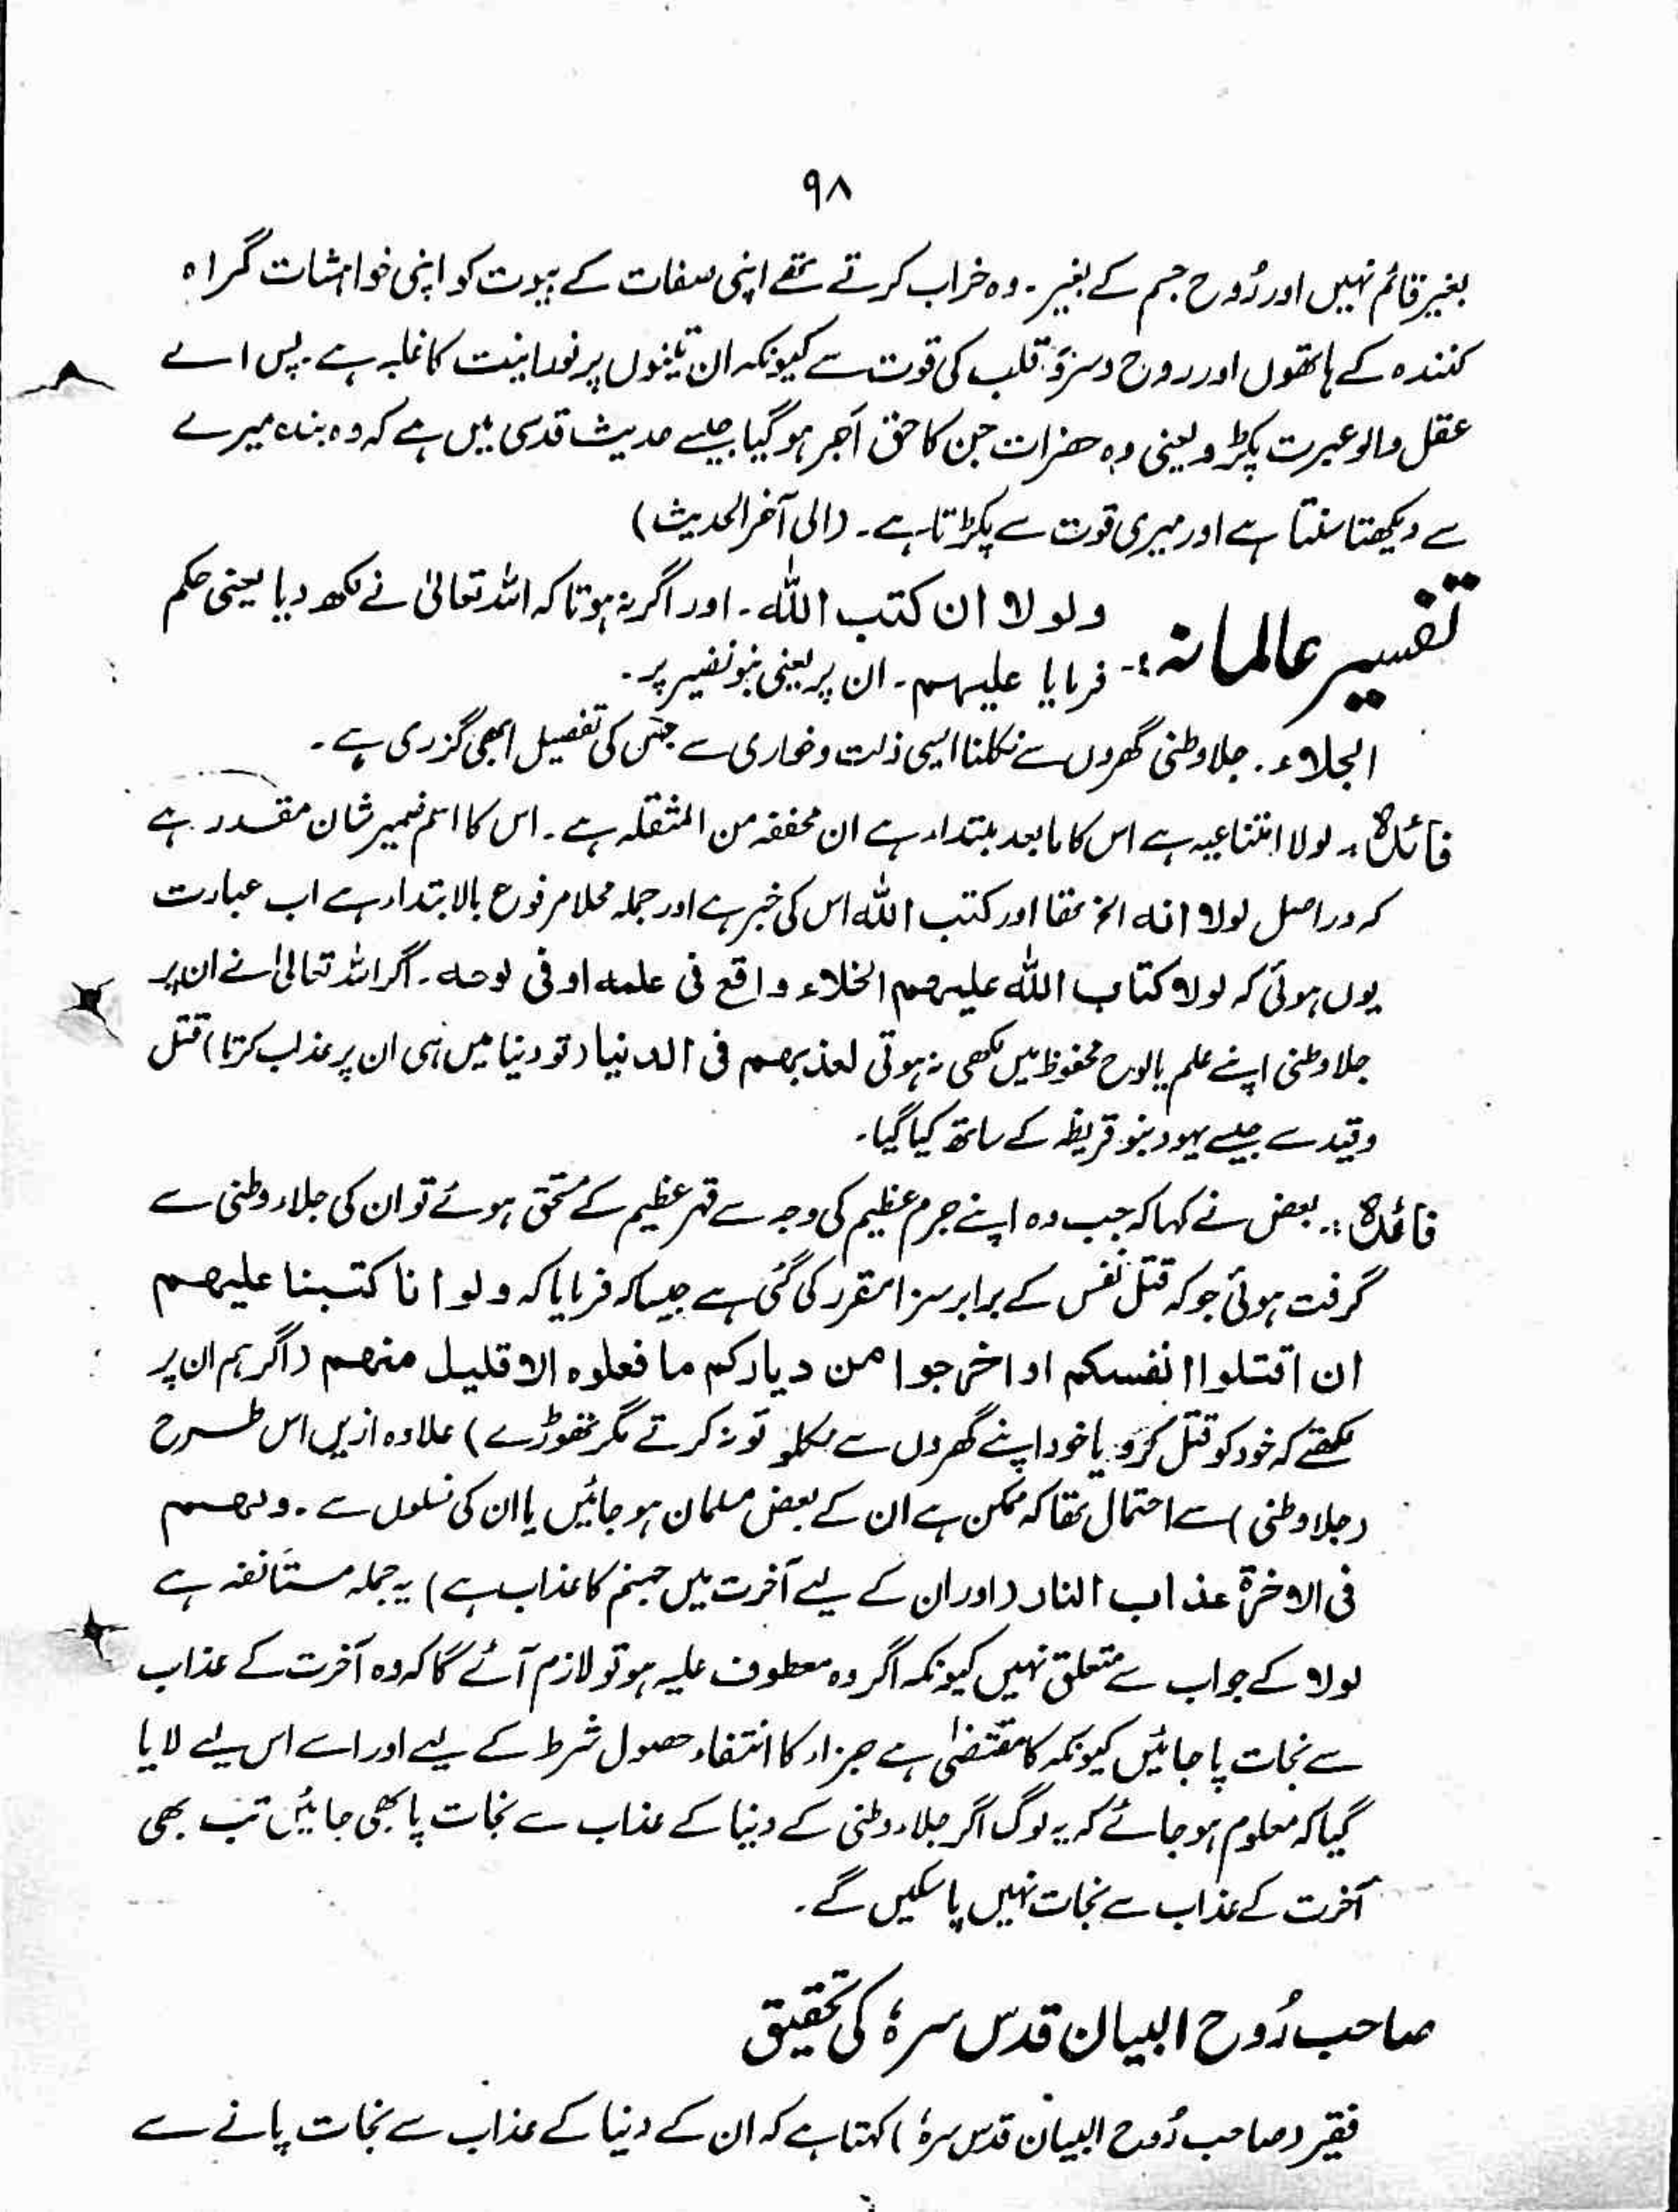 ۹۸
بغیر قائم نہیں اور رُوح جسم کے بغیر۔ وہ خراب کرتے تھے اپنی صفات کے بیوت کو اپنی خواہشات گمراہ
کنندہ کے ہاتھوں اور روح و سرّ و قلب کی قوت سے کیونکہ ان تینوں پر نورانیت کا غلبہ ہے۔ پس اے
عقل والو عبرت پکڑو یعنی وہ حضرات جن کا حق اَجر ہو گیا جیسے حدیث قدسی میں ہے کہ وہ بندہ میرے
سے دیکھتا سنتا ہے اور میری قوت سے پکڑتا ہے۔ (الی آخر الحدیث)
تفسیر عالمانہ :۔ ولولا ان کتب اللہ۔ اور اگر نہ ہوتا کہ اللہ تعالیٰ نے لکھ دیا یعنی حکم
فرمایا علیہم۔ ان پر یعنی بنو نضیر پر۔
الجلاء۔ جلاوطنی گھروں سے نکلنا ایسی ذلت و خواری سے جس کی تفصیل ابھی گزری ہے۔
فائدہ :۔ لولا امتناعیہ ہے اس کا مابعد مبتداء ہے ان مخففہ من المثقلہ ہے۔ اس کا اسم ضمیر شان مقدر ہے
کہ دراصل لولا انہ الخ تھا اور کتب اللہ اس کی خبر ہے اور جملہ محلا مرفوع بالابتداء ہے اب عبارت
یوں ہوئی کہ لولا کتاب اللہ علیہم الخلاء واقع فی علمہ او فی لوحہ۔ اگر اللہ تعالیٰ نے ان پر
جلاوطنی اپنے علم یا لوح محفوظ میں لکھی نہ ہوتی لعذبہم فی الدنیا (تو دنیا میں ہی ان پر عذاب کرتا) قتل
و قید سے جیسے یہود بنو قریظہ کے ساتھ کیا گیا۔
فائدہ :۔ بعض نے کہا کہ جب وہ اپنے جرم عظیم کی وجہ سے قہر عظیم کے مستحق ہوئے تو ان کی جلاء وطنی سے
گرفت ہوئی جو کہ قتل نفس کے برابر سزا مقرر کی گئی ہے جیسا کہ فرمایا کہ ولو انا کتبنا علیھم
ان اقتلوا انفسکم او اخرجوا من دیارکم ما فعلوہ الا قلیل منھم (اگر ہم ان پر
لکھتے کہ خود کو قتل کرو یا خود اپنے گھروں سے نکلو تو نہ کرتے مگر تھوڑے) علاوہ ازیں اس طرح
(جلاوطنی) سے احتمال تھا کہ ممکن ہے ان کے بعض مسلمان ہو جائیں یا ان کی نسلوں سے۔ ولھم
فی الاخرۃ عذاب النار (اور ان کے لیے آخرت میں جہنم کا عذاب ہے) یہ جملہ مستأنفہ ہے
لولا کے جواب سے متعلق نہیں کیونکہ اگر وہ معطوف علیہ ہو تو لازم آئے گا کہ وہ آخرت کے عذاب
سے نجات پا جائیں کیونکہ کا مقتضیٰ ہے جزاء کا انتفاء حصول شرط کے لیے اور اسے اس لیے لایا
گیا کہ معلوم ہو جائے کہ یہ لوگ اگر جلاء وطنی کے دنیا کے عذاب سے نجات پا بھی جائیں تب بھی
آخرت کے عذاب سے نجات نہیں پا سکیں گے۔
صاحب رُوح البیان قدس سرہٗ کی تحقیق
فقیر (صاحب رُوح البیان قدس سرہٗ) کہتا ہے کہ ان کے دنیا کے عذاب سے نجات پانے سے